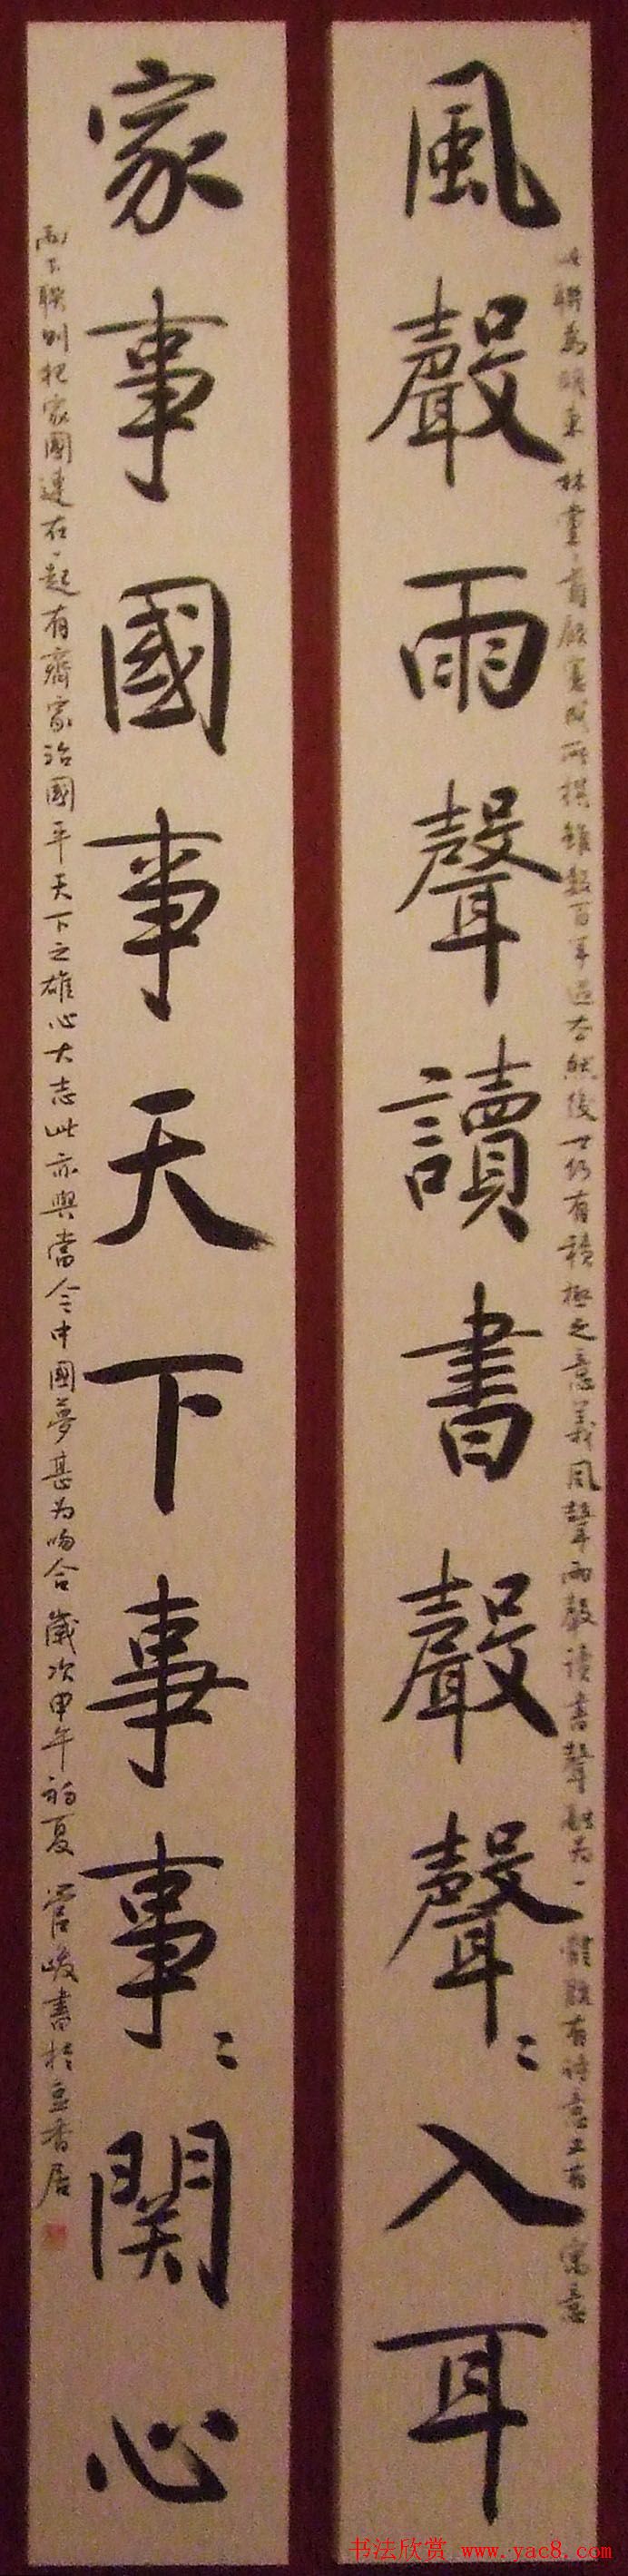 風聲雨聲讀書聲聲〻入耳
此聯為明東林黨首顧憲成所撰雖數百年過去然後世仍有積極之意義風聲雨聲讀書聲融為一體既有詩意又有寓意
家事國事天下事事〻關心
而下聯則把家國連在一起有齊家治國平天下之雄心大志此亦與當今中國夢甚为吻合歲次甲午初夏管峻書於豆香居
书法欣赏 www.yac8.com